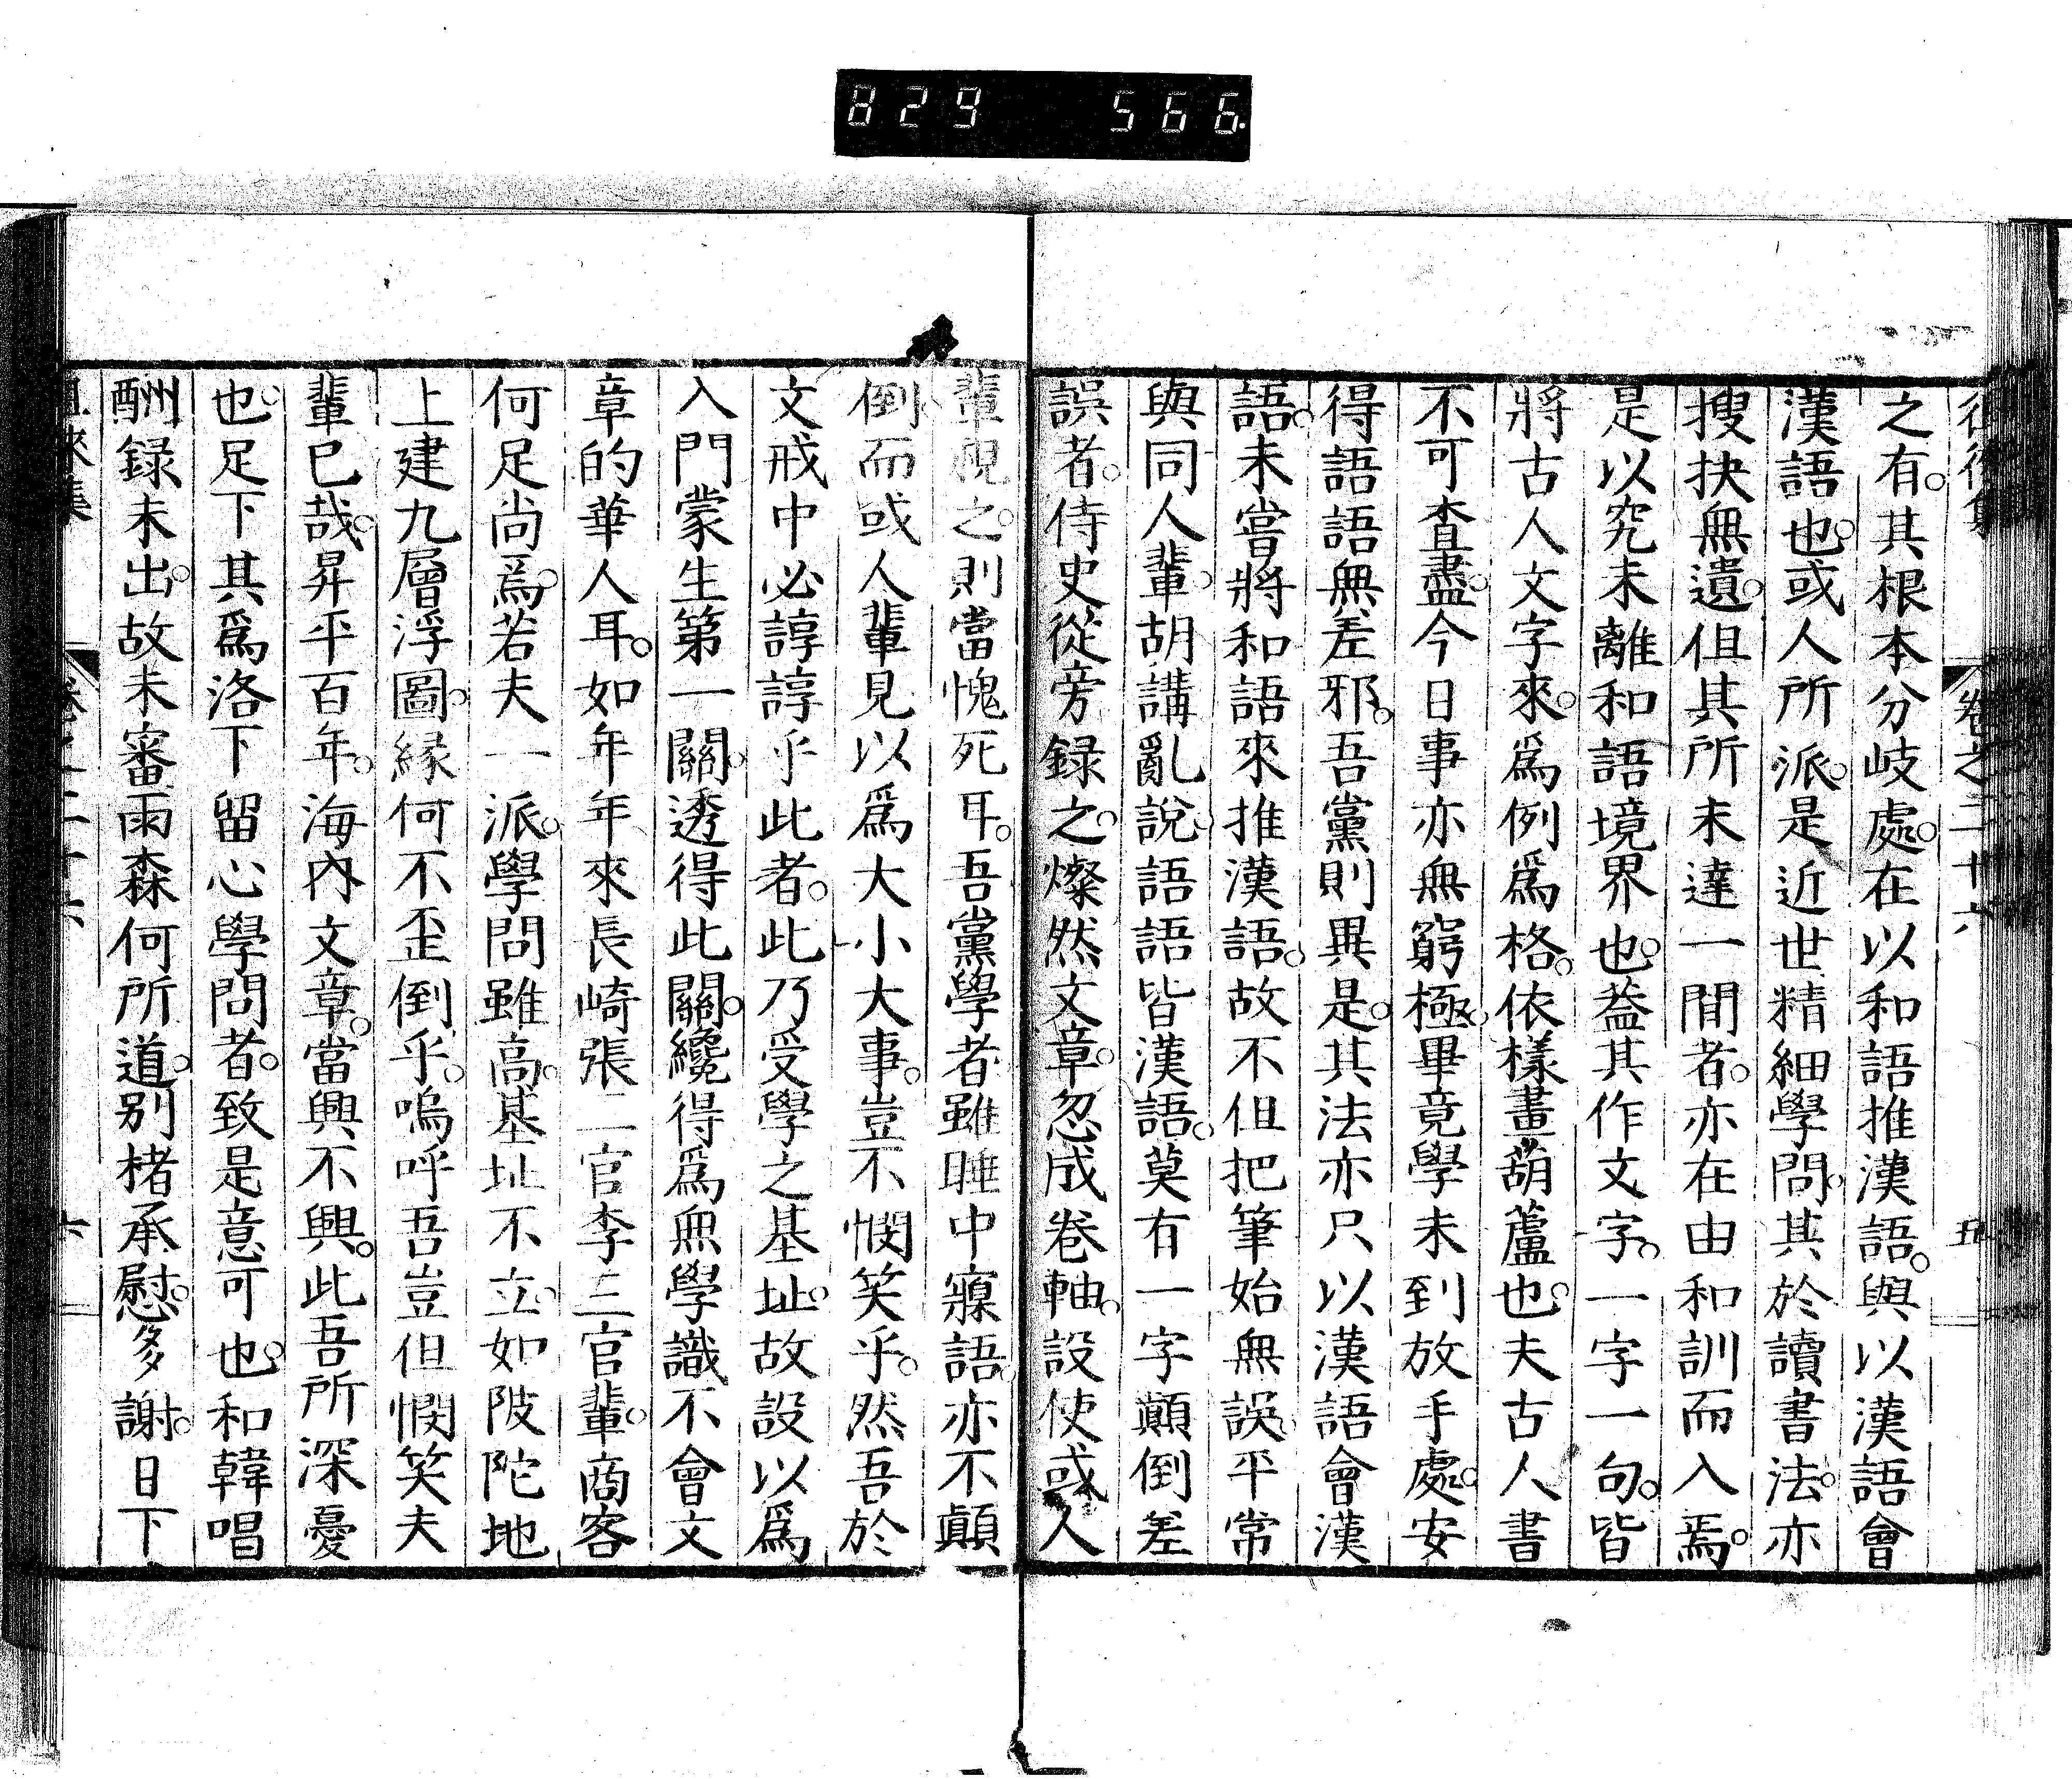 829 566
卷之二十六 五
之有。其根本分岐處。在以和語推漢語。與以漢語會
漢語也。或人所派。是近世精細學問。其於讀書法。亦
搜抉無遺。但其所未達一間者。亦在由和訓而入焉。
是以究未離和語境界也。葢其作文字。一字一句。皆
將古人文字來。爲例爲格。依樣畫葫蘆也。夫古人書
不可査盡。今日事亦無窮極。畢竟學未到放手處。安
得語語無差邪。吾黨則異是。其法亦只以漢語會漢
語。未嘗將和語來推漢語。故不但把筆始無誤。平常
與同人輩。胡講亂說。語語皆漢語。莫有一字顚倒差
誤者。侍史從旁録之。燦然文章。忽成卷軸。設使或人
輩視之。則當愧死耳。吾黨學者。雖睡中寱語。亦不顚
倒。而或人輩見以爲大小大事。豈不憫笑乎。然吾於
文戒中必諄諄乎此者。此乃受學之基址。故設以爲
入門蒙生第一關。透得此關。纔得爲無學識不會文
章的華人耳。如年年來長崎張二官李三官輩。商客
何足尚焉。若夫一派。學問雖高。基址不立。如陂陀地
上建九層浮圖。緣何不歪倒乎。嗚呼吾豈但憫笑夫
輩已哉。昇平百年。海內文章。當興不興。此吾所深憂
也。足下其爲洛下留心學問者。致是意可也。和韓唱
酬録未出。故未審雨森何所道。別楮承慰。多謝。日下
徠集 卷之二十六 六